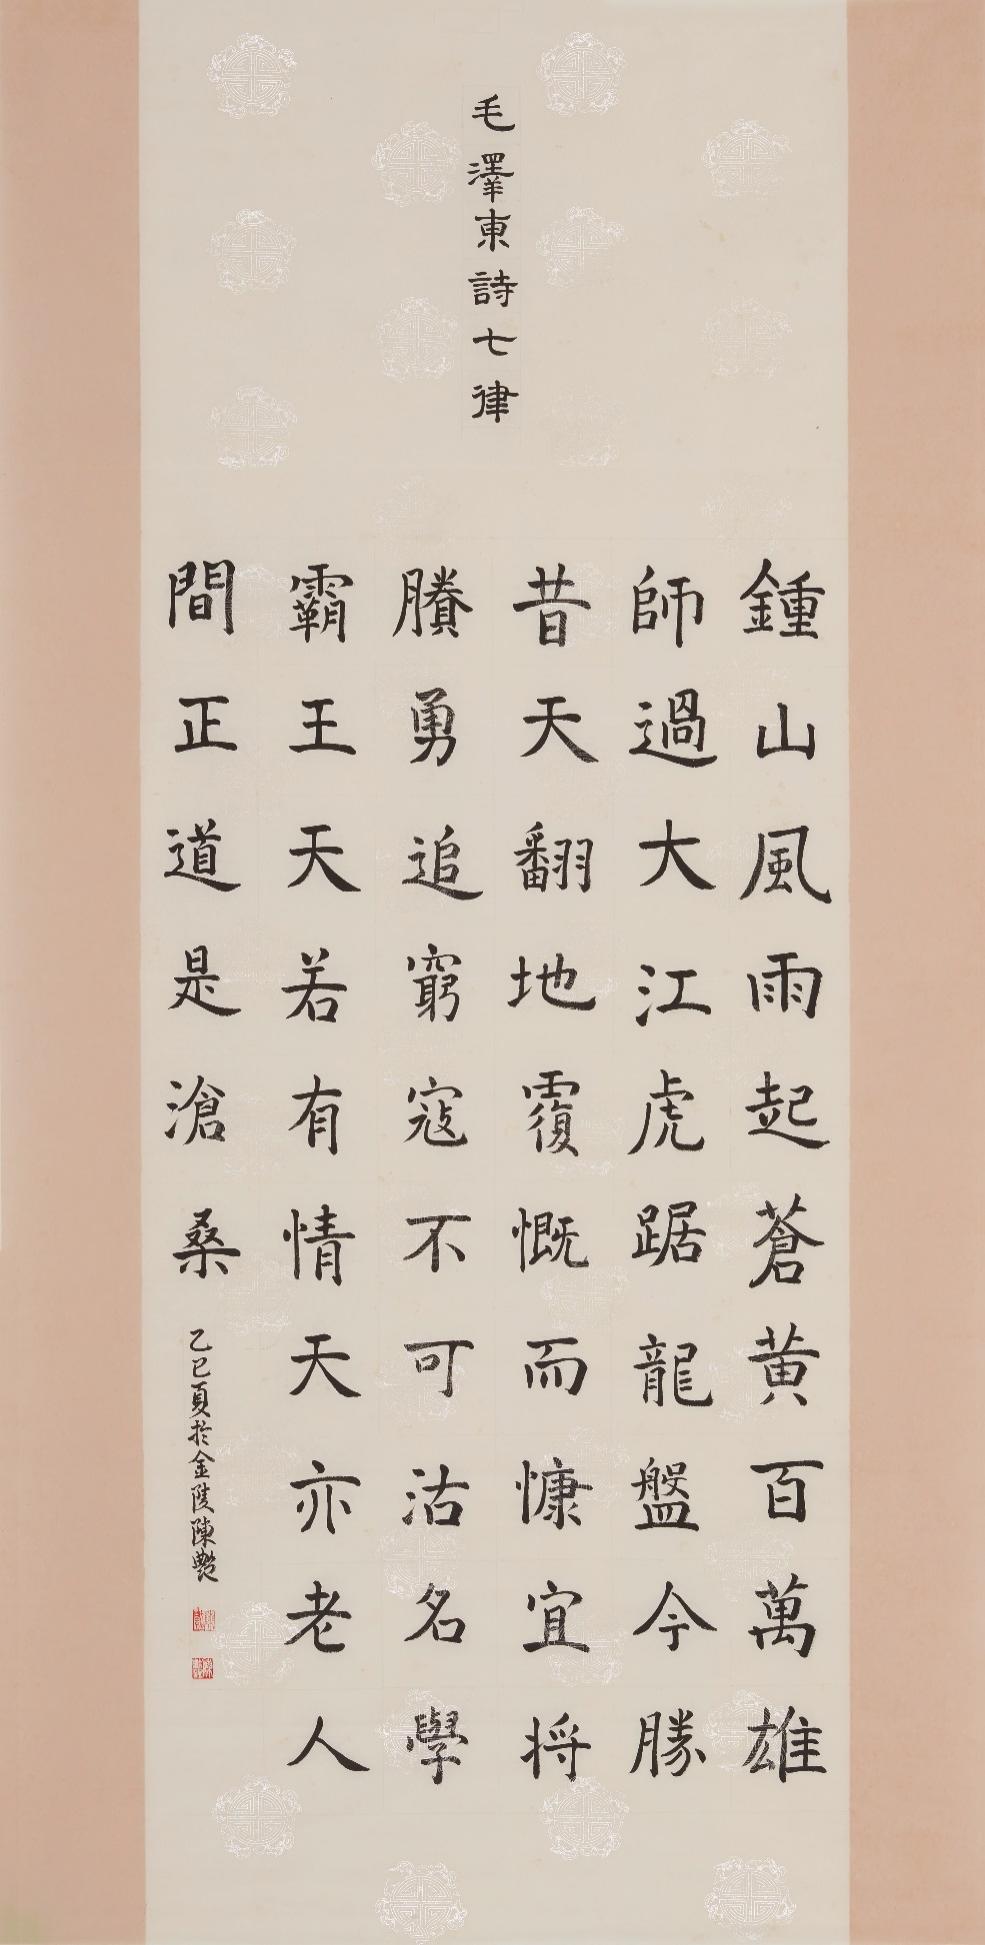 毛澤東詩七律
鍾山風雨起蒼黃百萬雄
師過大江虎踞龍盤今勝
昔天翻地覆慨而慷宜将
賸勇追窮寇不可沽名學
霸王天若有情天亦老人
間正道是滄桑
乙巳夏於金陵陳艷